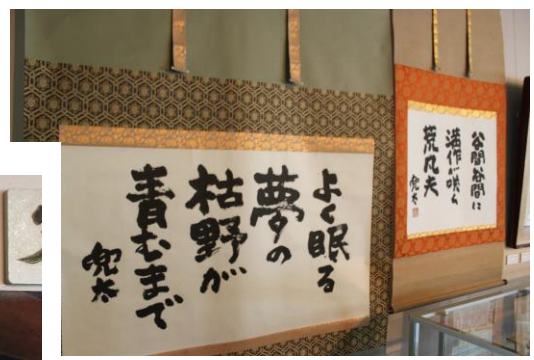 よく眠る
夢の
枯野が
青むまで
兜太
谷間谷間に
満作が咲く
荒凡夫
兜太